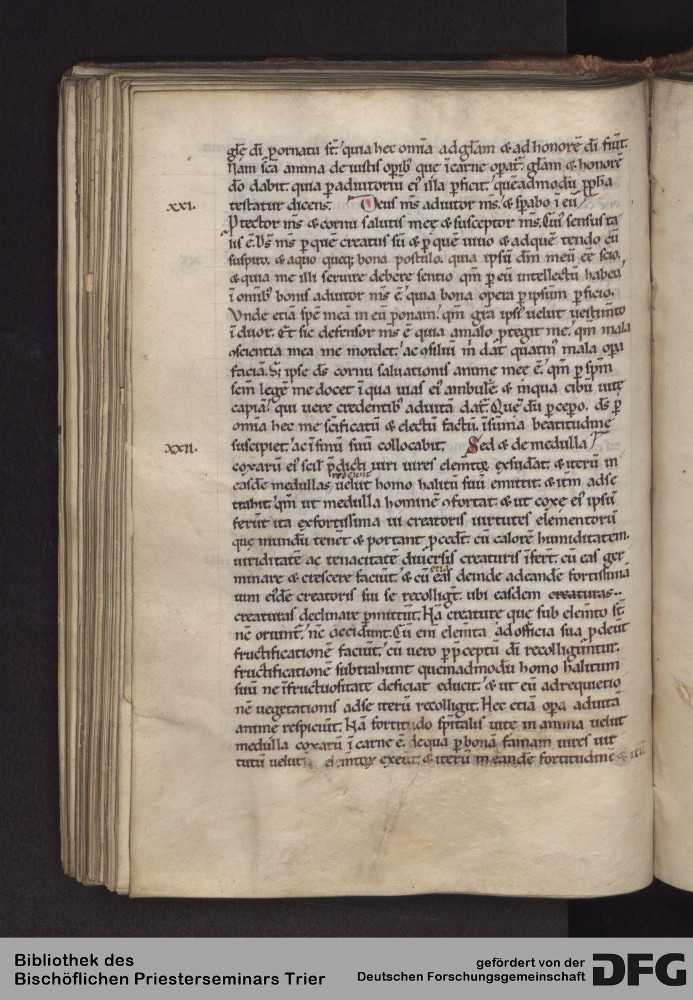 glę di ꝑornatu st̄. quia hec om̄ia ad gl̄am & ad honorē di fiūt.
Nam sc̄a anima de iustis opib; que ī carne opat̄. gl̄am & honorē
dō dabit. quia ꝑ adiutoriū ei' illa ꝑficit. quēadmodū ꝓph̄a
xxi. testatur dicens. Deus m̄s adiutor m̄s. & sꝑabo ī eū
Ptector m̄s & cornu salutis meę & susceptor m̄s. Cui' sensus ta
lis ē. Ds̄ m̄s ꝑ quē creatus sū & ꝑ quē uiuo & ad quē tendo cū
suspiro. & a quo queq; bona postulo. quia ipsū dn̄m meū eē scio.
& quia me illi seruire debere sentio qm̄ ꝑ eū intellectū habeo
ī omib' bonis adiutor m̄s ē. quia bona opera ꝑ ipsum ꝑficio.
Vnde etiā spē meā in eū ponam. qm̄ gr̄a ipsi' uelut uestimto
īduor. Et sic defensor m̄s ē quia a malo ꝓtegit me. qm̄ mala
ꝯscientia mea me mordet. ac ꝯsiliū m̄ dat quatin' mala opa
faciā. Si ipse ds̄ cornu saluationis anime meę ē. qm̄ ꝑ spm̄
scm̄ legē me docet ī qua uias ei' ambulē. & in qua cibū uitę
capiā. qui uere credentib' adiutā dat̄. Quē dū ꝑcepo. ds̄ ꝑ
omīa hec me sc̄ificatū & electū factū. ī suma beatitudine
xxii. suscipiet. ac ī finū suū collocabit. Sed & de medulla
coxarū ei' scil' p̄dicti uiri uires elemtoꝝ exsudat̄. & iterū in
easdē medullas redeunt uelut homo halitū suū emittit & itm̄ ad se
trahit. qm̄ ut medulla hominē ꝯfortat. & ut coxe ei' ipsū
ferūt ita ex fortissima ui creatoris uirtutes elementorū
que mundū tenēt & portant ꝓcedt̄. cū calorē humiditatem.
uiriditatē ac tenacitatē diuersis creaturis īfert̄. cū eas ger
minare & crescere faciūt. & cū etiā eas deinde ad eande fortissimā
uim ei'dē creatoris sui se recolligt̄. ubi easdem creaturas..
creaturas declinare ꝑmittūt. Nā creature que sub elemto st̄
nc̄ oriunt̄. nc̄ occidunt. Cū eni elemta ad officia sua ꝓdeūt
fructificationē faciūt. cū uero ꝑ p̄ceptū di recolligūntur.
fructificationē subtrahunt quemadmodū homo halitum
suū ne ī fructuositate deficiat educit. & ut eū ad requietio
nē uegetationis ad se iterū recolligit. Hec etiā opa adiutā
anime respiciūt. Nā fortitudo spitalis uite in anima uelut
medulla coxarū ī carne ē. de qua ꝑ bonā famam uires uir
tutū uelut elemtoꝝ exeūt. & iterū in eandē fortitudinē
Bibliothek des
Bischöflichen Priesterseminars Trier
gefördert von der
Deutschen Forschungsgemeinschaft
DFG